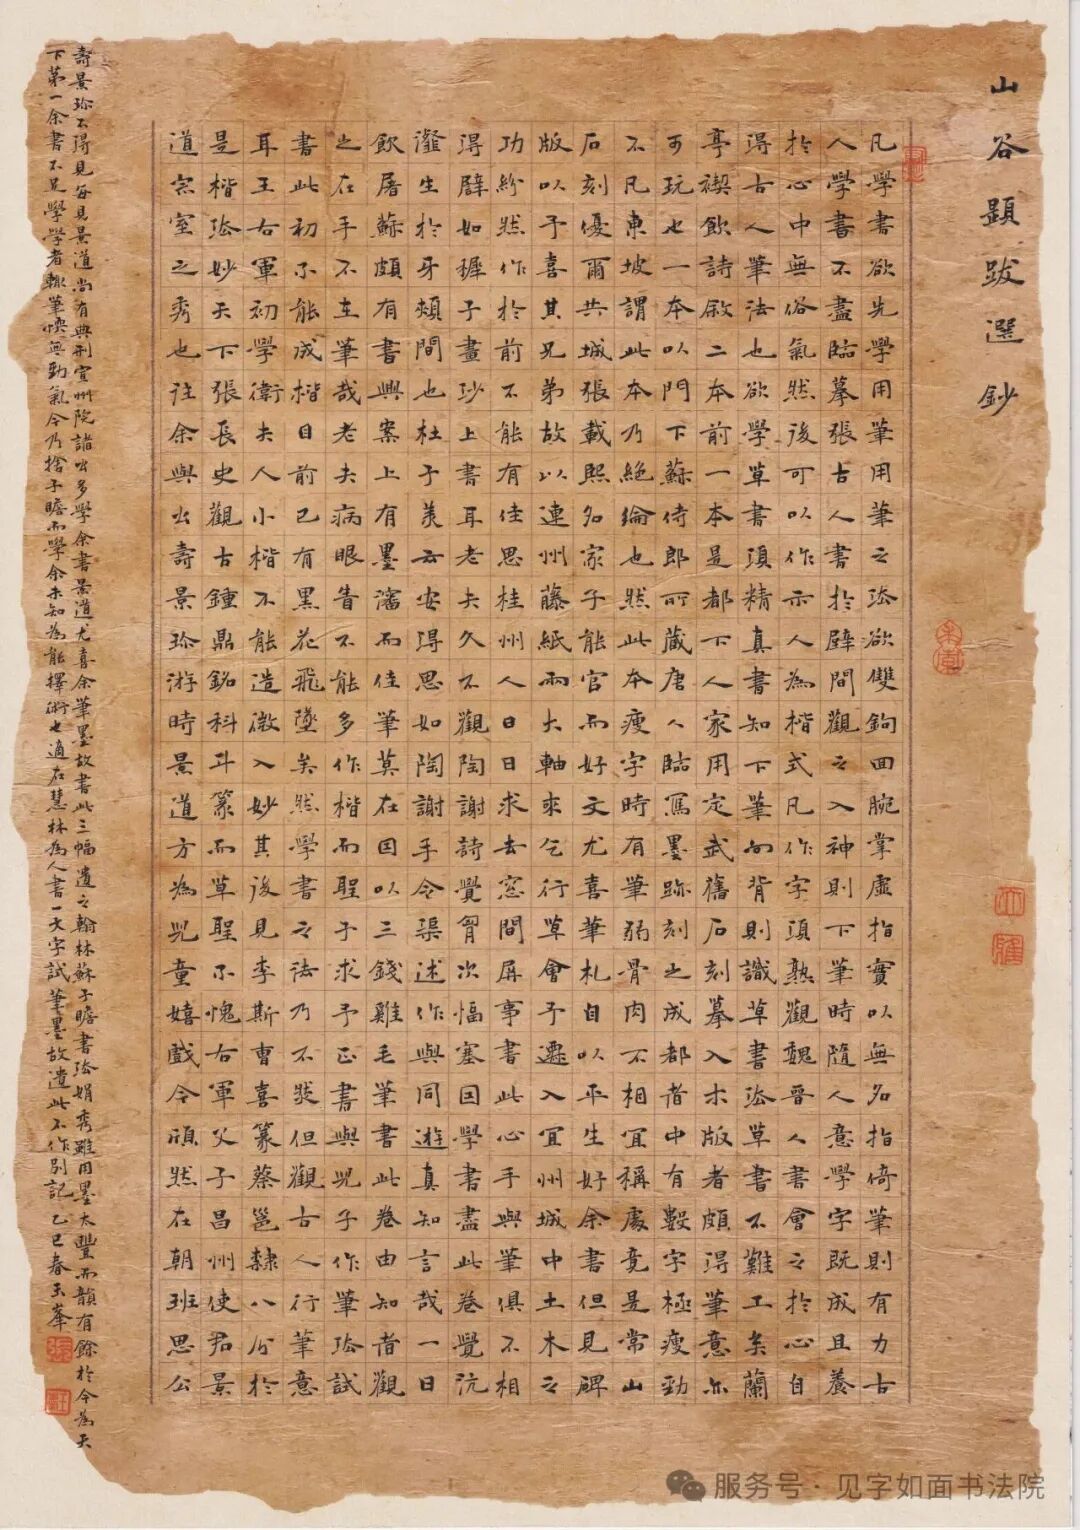 山谷題跋選鈔
凡學書欲先學用筆用筆之法欲雙鉤回腕掌虛指實以無名指倚筆則有力古
人學書不盡臨摹張古人書於壁間觀之入神則下筆時隨人意學字既成且養
於心中無俗氣然後可以作示人為楷式凡作字須熟觀魏晉人書會之於心自
得古人筆法也欲學草書須精真書知下筆向背則識草書法草書不難工矣蘭
亭禊飲詩敘二本前一本是都下人家用定武舊石刻摹入木版者頗得筆意亦
可玩也一本以門下蘇侍郎所藏唐人臨寫墨跡刻之成都者中有數字極瘦勁
不凡東坡謂此本乃絕倫也然此本瘦字時有筆弱骨肉不相宜稱處竟是常山
石刻優爾共城張載熙名家子能官而好文尤喜筆札自以平生好余書但見碑
版以予喜其兄弟故以連州藤紙兩大軸來乞行草會予遷入宜州城中土木之
功紛然作於前不能有佳思桂州人日日求去窓間屏事書此心手與筆俱不相
得辟如穉子畫沙上書耳老夫久不觀陶謝詩覺胷次愊塞因學書盡此卷覺沆
瀣生於牙頰間也杜子美云安得思如陶謝手令渠述作與同遊真知言哉一日
飲屠蘇頗有書興案上有墨瀋而佳筆莫在因以三錢雞毛筆書此卷由知者觀
之在手不在筆哉老夫病眼眚不能多作楷而聖予求予正書與兒子作筆法試
書此初不能成楷目前已有黑花飛墜矣然學書之法乃不然但觀古人行筆意
耳王右軍初學衛夫人小楷不能造微入妙其後見李斯曹喜篆蔡邕隸八分於
是楷法妙天下張長史觀古鍾鼎銘科斗篆而草聖不愧右軍父子昌州使君景
道宗室之秀也往余與公壽景珍游時景道方為兒童嬉戲今頎然在朝班思公
壽景珍不得見每見景道尚有典刑宣州院諸公多學余書景道尤喜余筆墨故書此三幅遺之翰林蘇子瞻書法娟秀雖用墨太豐而韻有餘於今為天
下第一余書不足學學者輒筆愞無勁氣今乃捨子瞻而學余未知為能擇術也適在慧林為人書一文字試筆墨故遺此不作別記 乙巳春玉峯
服务号 · 见字如面书法院